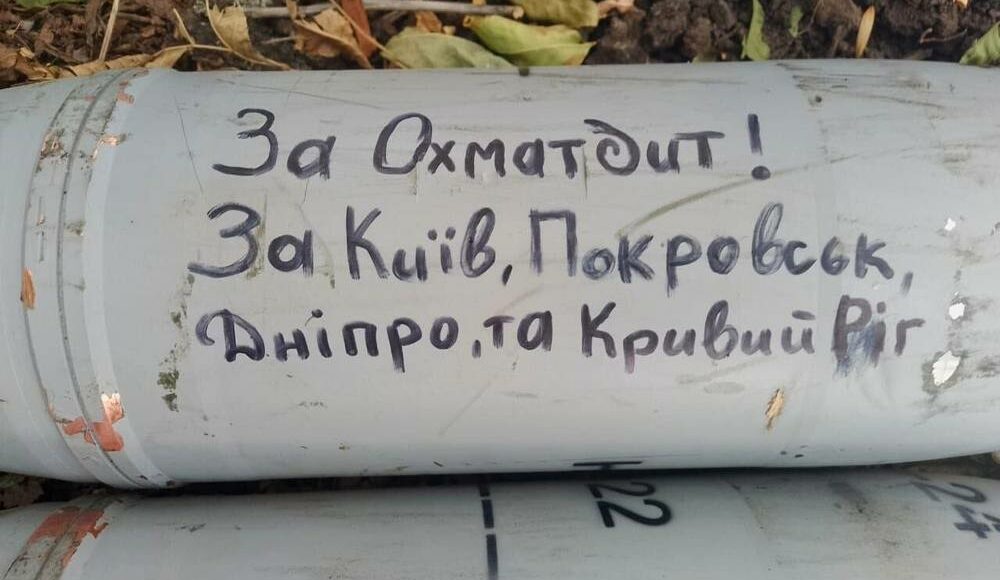 За Охматдит!
За Київ, Покровськ,
Дніпро, та Кривий Ріг
H22